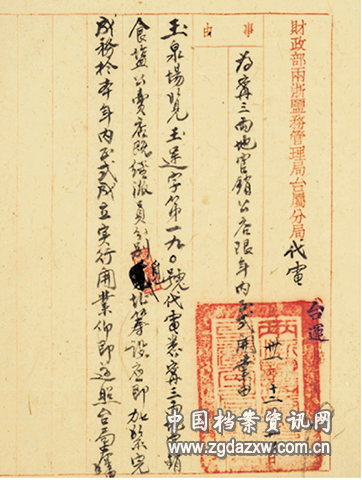 財政部兩浙鹽務管理局台屬分局代電
事由
為寧三兩地官銷公店限年內正式開業由
台運
卅 十二
玉泉場覽玉運字第一九〇號代電悉寧三兩地官銷
食鹽公賣店既經派員分別 籌設應即加緊完
成務於本年內正式成立實行開業仰即遵照台局
中国档案资讯网
www.zgdazxw.com.cn